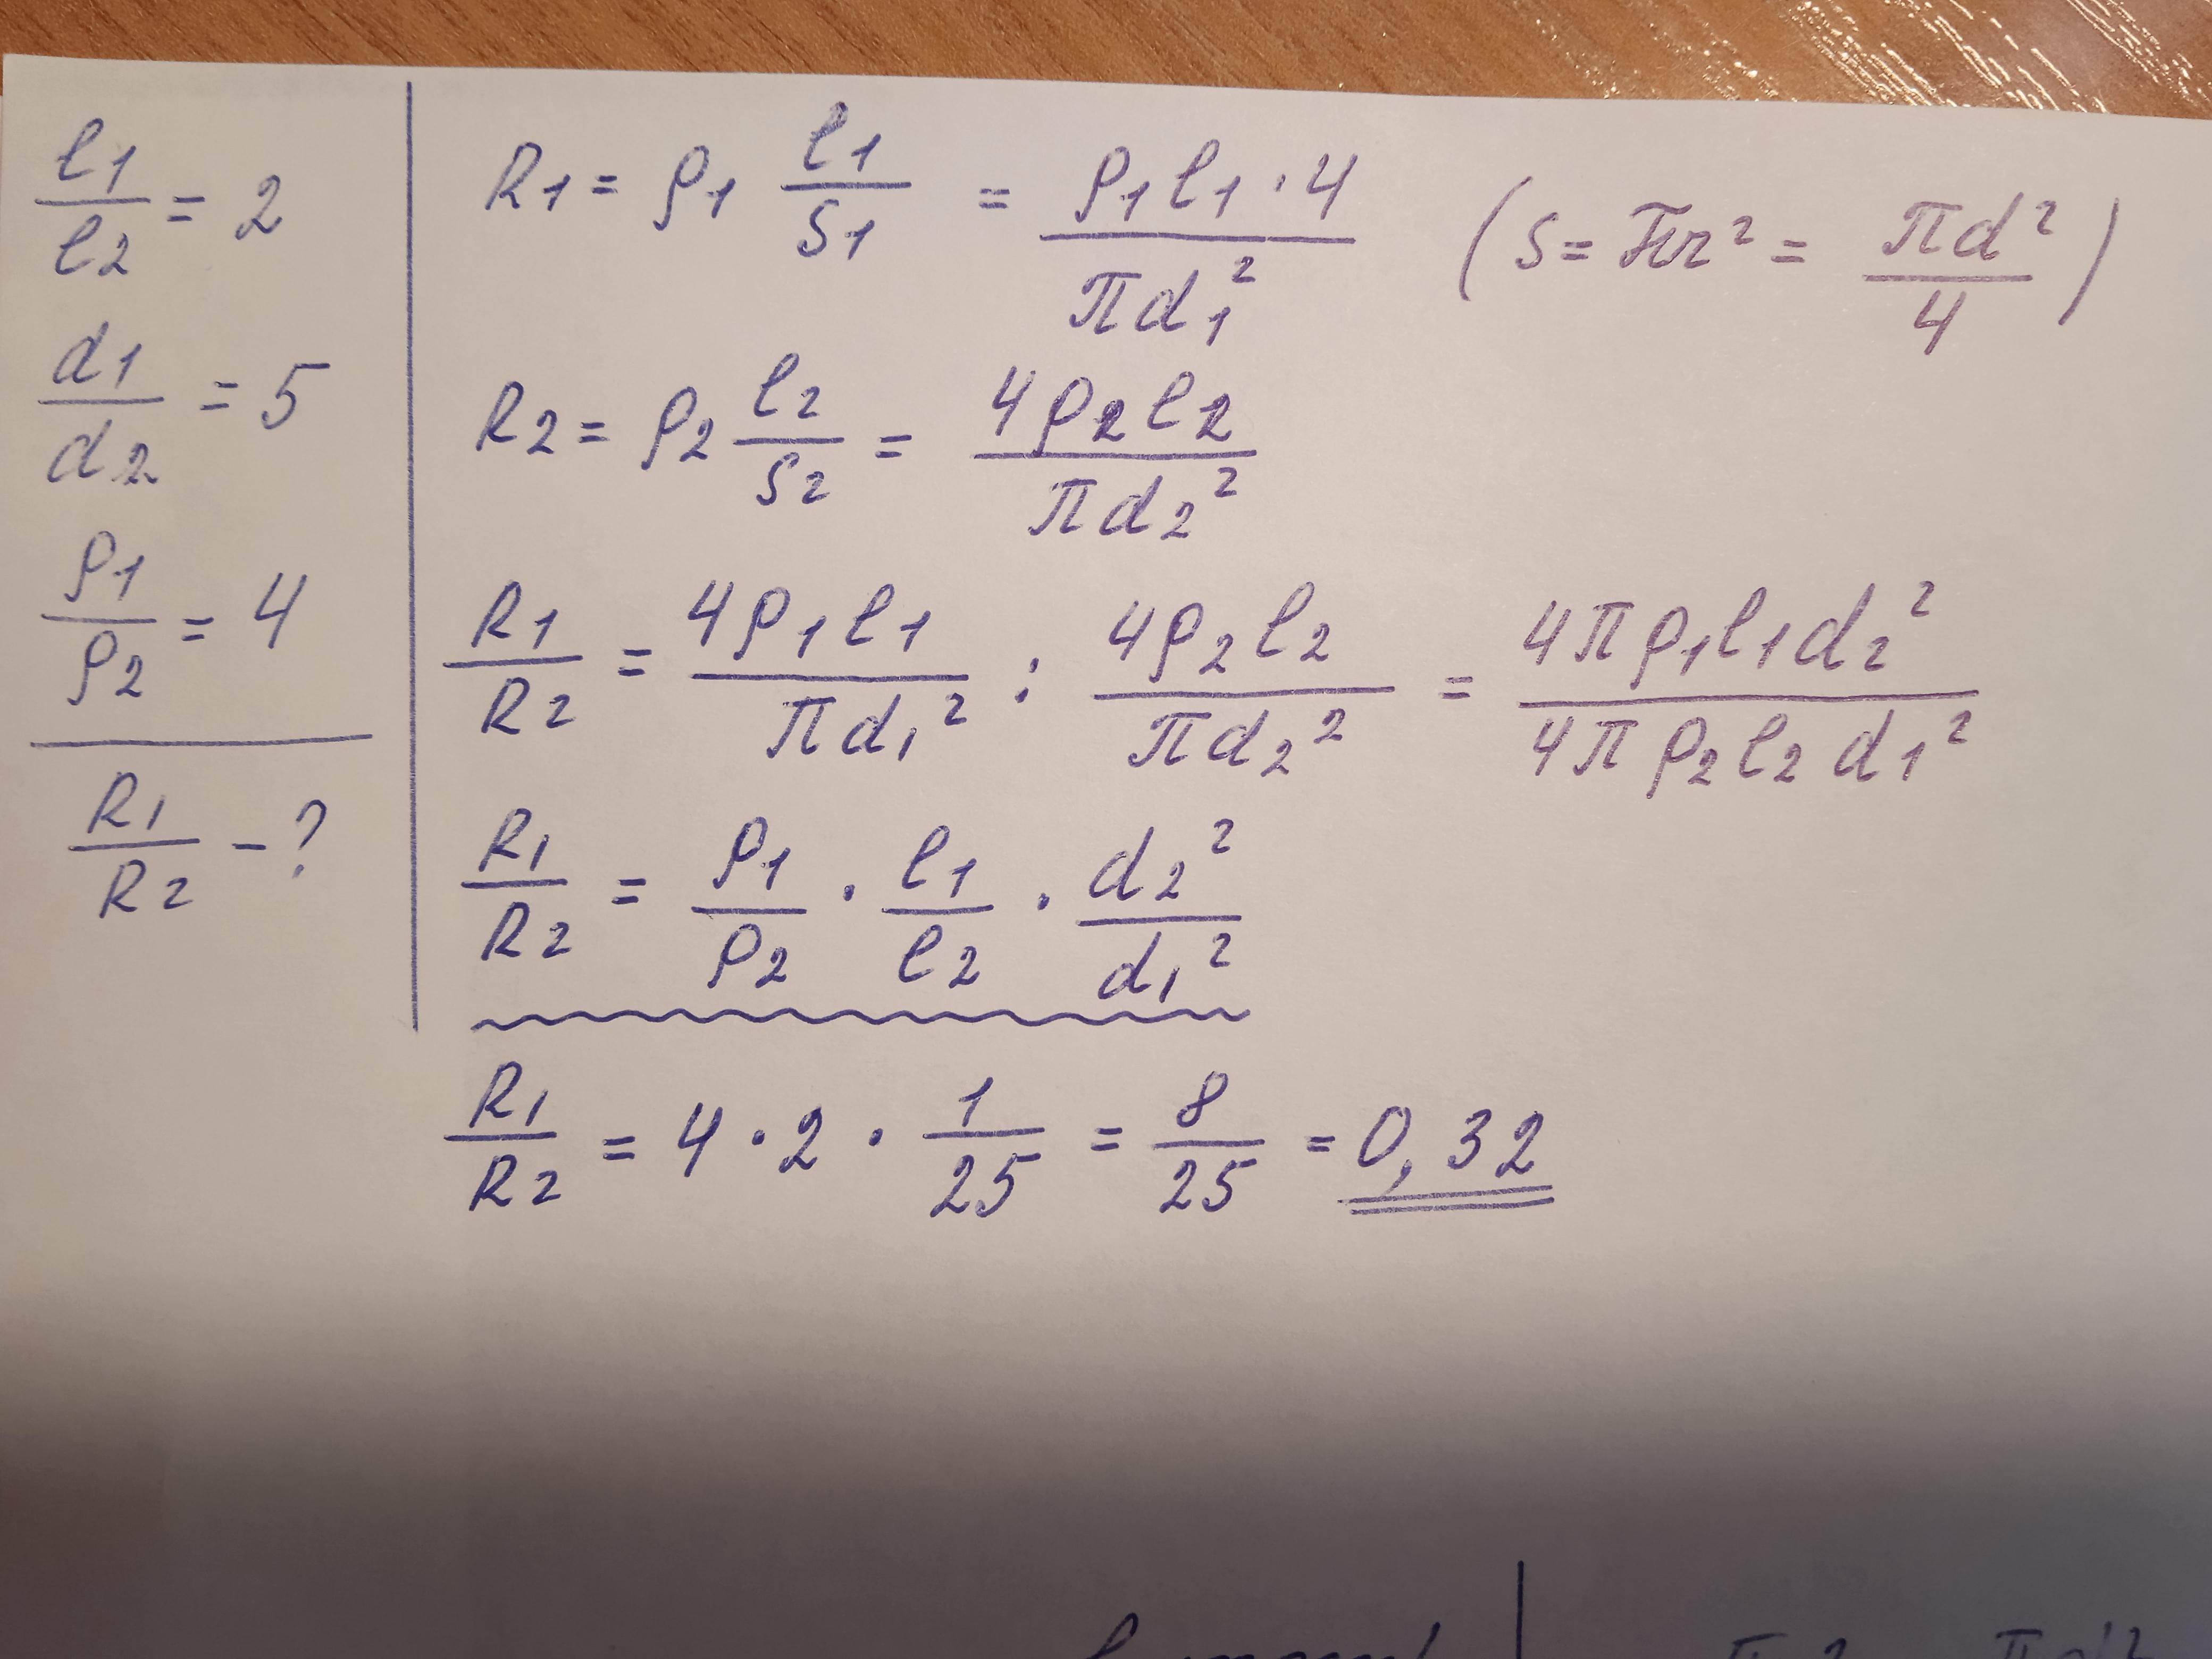 l1/l2 = 2
d1/d2 = 5
ρ1/ρ2 = 4
R1/R2 - ?
R1 = ρ1 l1/S1 = ρ1 l1 · 4/πd1² (S = πr² = πd²/4)
R2 = ρ2 l2/S2 = 4ρ2 l2/πd2²
R1/R2 = 4ρ1 l1/πd1² : 4ρ2 l2/πd2² = 4πρ1 l1 d2²/4πρ2 l2 d1²
R1/R2 = ρ1/ρ2 · l1/l2 · d2²/d1²
R1/R2 = 4 · 2 · 1/25 = 8/25 = 0,32